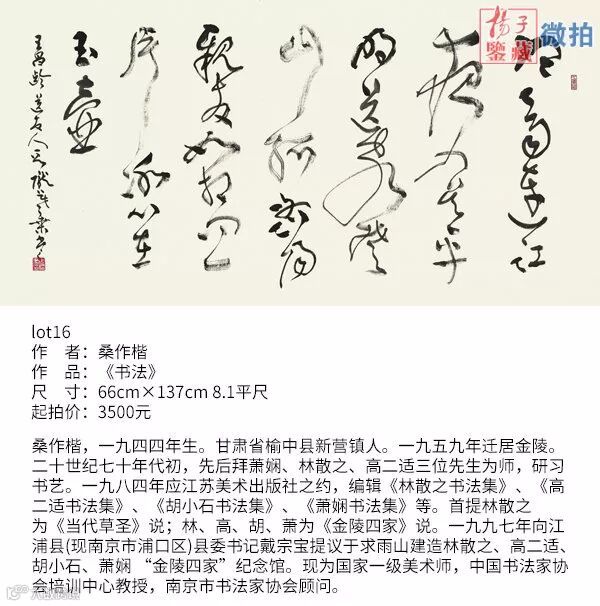 揚子
鑒藏
微拍
寒雨連江
夜入吴平
明送客楚
山孤洛陽
親友如相問一
片冰心在
玉壺
王昌齡送友人
lot16
作 者：桑作楷
作 品：《书法》
尺 寸：66cm×137cm 8.1平尺
起拍价：3500元
桑作楷，一九四四年生。甘肃省榆中县新营镇人。一九五九年迁居金陵。
二十世纪七十年代初，先后拜萧娴、林散之、高二适三位先生为师，研习
书艺。一九八四年应江苏美术出版社之约，编辑《林散之书法集》、《高
二适书法集》、《胡小石书法集》、《萧娴书法集》等。首提林散之
为《当代草圣》说；林、高、胡、萧为《金陵四家》说。一九九七年向江
浦县(现南京市浦口区)县委书记戴宗宝提议于求雨山建造林散之、高二适、
胡小石、萧娴 “金陵四家”纪念馆。现为国家一级美术师，中国书法家协
会培训中心教授，南京市书法家协会顾问。